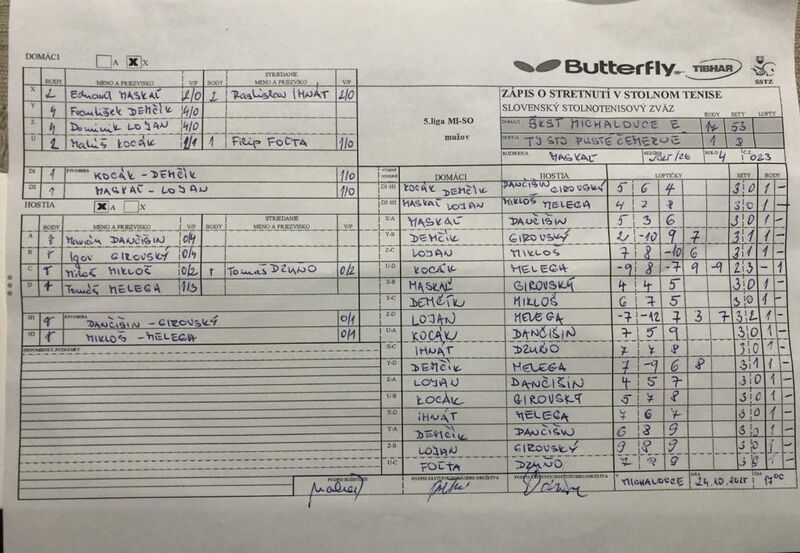 DOMÁCI A X
Butterfly TIBHAR SSTZ
BODY MENO A PRIEZVISKO V/P BODY STRIEDANIE MENO A PRIEZVISKO V/P
X 2 Eduard MASKAĽ 2/0 2 Rastislav IHNÁT 2/0
Y 4 František DEMČÍK 4/0
Z 4 Dominik LOJAN 4/0
U 2 Matúš KOCÁK 1/1 1 Filip FOĽTA 1/0
D1 ŠTVORHRA 1 KOCÁK - DEMČÍK 1/0
D2 1 MASKAĽ - LOJAN 1/0
HOSTIA A X
BODY MENO A PRIEZVISKO V/P BODY STRIEDANIE MENO A PRIEZVISKO V/P
A Marián DANČIŠIN 0/4
B Igor GIROVSKÝ 0/4
C Miloš MIKLOŠ 0/2 Tomáš DZUŇO 0/2
D Tomáš MELEGA 1/3
H1 ŠTVORHRA DANČIŠIN - GIROVSKÝ 0/1
H2 MIKLOŠ - MELEGA 0/1
PRIPOMIENKY, POZNÁMKY
5.liga MI-SO
mužov
ZÁPIS O STRETNUTÍ V STOLNOM TENISE
SLOVENSKÝ STOLNOTENISOVÝ ZVÄZ
BODY SETY LOPTY
DOMÁCI ŠKST MICHALOVCE E 17 53
HOSTIA TJ STO PUSTÉ ČEMERNÉ 1 8
ROZHODCA MASKAĽ SEZÓNA 2025/26 KOLO 4 Č.Z. 023
DOMÁCI HOSTIA LOPTIČKY SETY BODY
D1-H1 KOCÁK DEMČÍK DANČIŠIN GIROVSKÝ 5 6 4 3 0 1 -
D2-H2 MASKAĽ LOJAN MIKLOŠ MELEGA 4 2 8 3 0 1 -
X-A MASKAĽ DANČIŠIN 5 3 6 3 0 1 -
Y-B DEMČÍK GIROVSKÝ 2 -10 9 7 3 1 1 -
Z-C LOJAN MIKLOŠ 7 8 -10 6 3 1 1 -
U-D KOCÁK MELEGA -9 8 -7 9 -9 2 3 - 1
X-B MASKAĽ GIROVSKÝ 4 4 5 3 0 1 -
Y-C DEMČÍK MIKLOŠ 6 7 5 3 0 1 -
Z-D LOJAN MELEGA -7 -12 7 3 7 3 2 1 -
U-A KOCÁK DANČIŠIN 7 5 9 3 0 1 -
X-C IHNÁT DZUŇO 7 7 8 3 0 1 -
Y-D DEMČÍK MELEGA 7 -9 6 8 3 1 1 -
Z-A LOJAN DANČIŠIN 4 5 7 3 0 1 -
U-B KOCÁK GIROVSKÝ 5 7 8 3 0 1 -
X-D IHNÁT MELEGA 7 6 7 3 0 1 -
Y-A DEMČÍK DANČIŠIN 6 8 9 3 0 1 -
Z-B LOJAN GIROVSKÝ 9 8 9 3 0 1 -
U-C FOĽTA DZUŇO 3 0 1 -
PODPIS ROZHODCU PODPIS ZÁSTUPCU DOMÁCEHO DRUŽSTVA PODPIS ZÁSTUPCU HOSŤUJÚCEHO DRUŽSTVA MICHALOVCE DŇA 24.10.2025 17:00